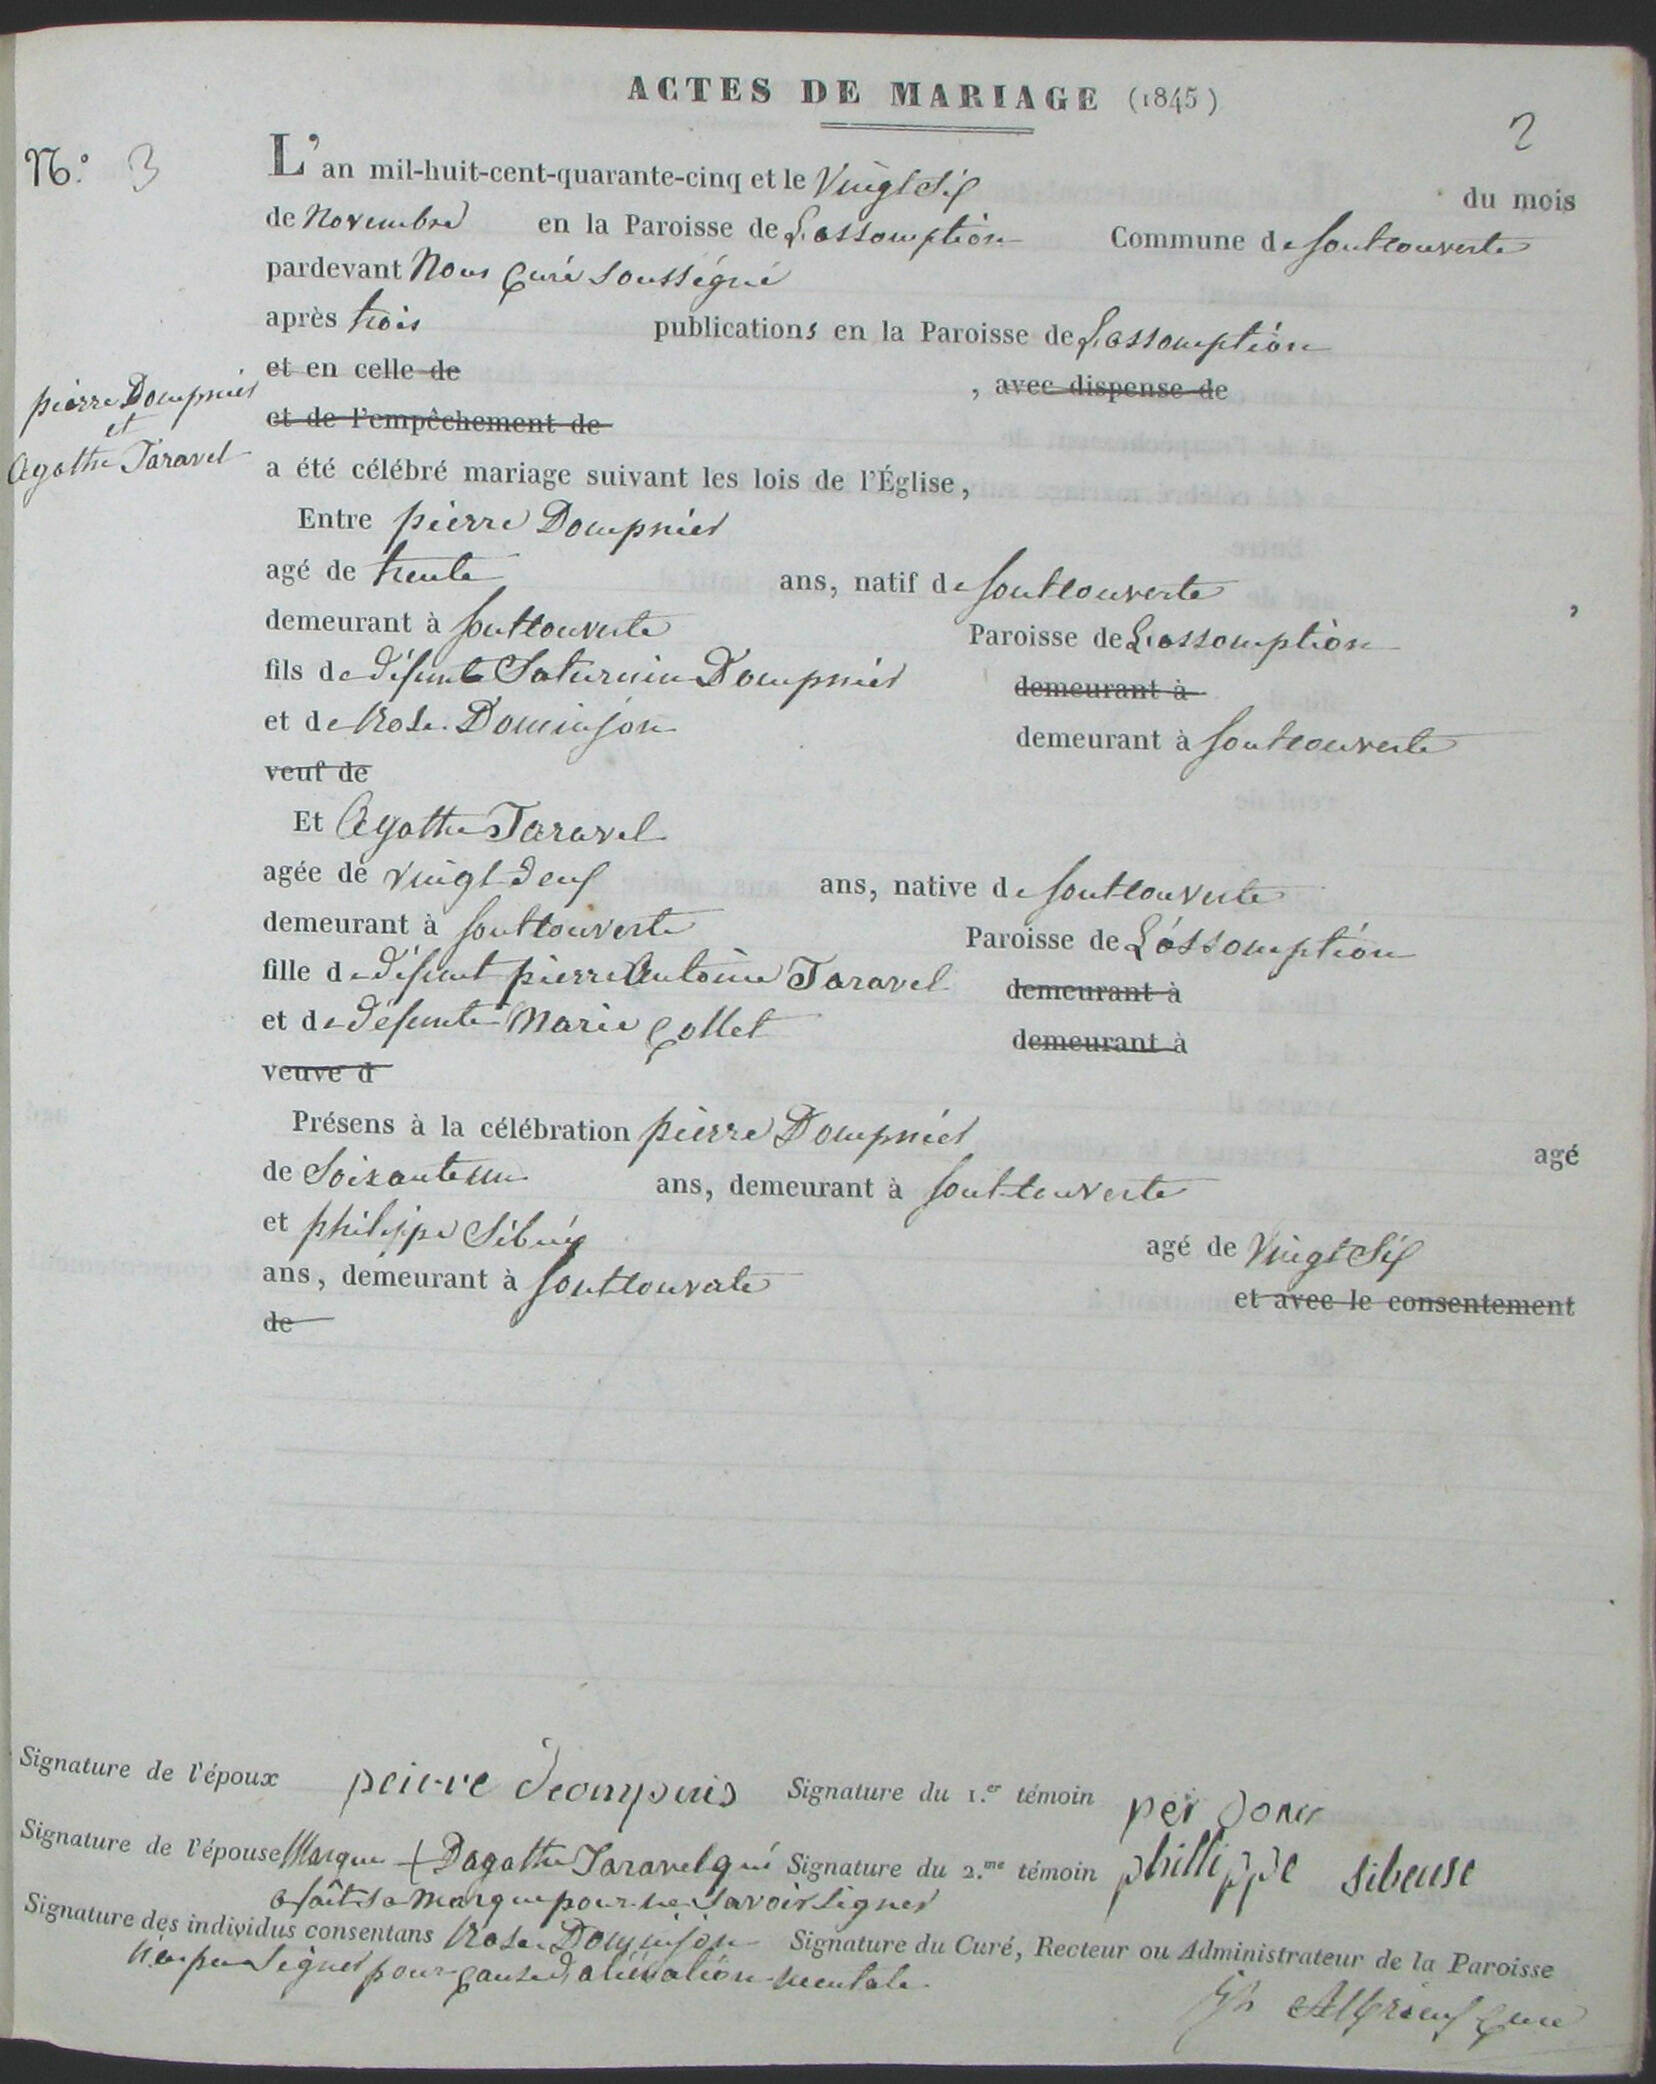 ACTES DE MARIAGE (1845)
2
N.° 3
L'an mil-huit-cent-quarante-cinq et le Vingt Six du mois
de Novembre en la Paroisse de L'assomption Commune de fontcouverte
pardevant Nous Curé soussigné
après trois publications en la Paroisse de L'assomption
et en celle de , avec dispense de
et de l'empêchement de
pierre Dompnier
et
Agathe Taravel
a été célébré mariage suivant les lois de l'Église,
Entre pierre Dompnier
agé de trente ans, natif de fontcouverte ,
demeurant à fontcouverte Paroisse de L'assomption
fils de défunt Saturnin Dompnier demeurant à
et de Rose Dominjon demeurant à fontcouverte
veuf de
Et Agathe Taravel
agée de vingt deux ans, native de fontcouverte
demeurant à fontcouverte Paroisse de L'assomption
fille de défunt pierre Antoine Taravel demeurant à
et de défunte Marie Collet demeurant à
veuve d
Présens à la célébration pierre Dompnier agé
de Soixante un ans, demeurant à fontcouverte
et philippe Sibué agé de Vingt Six
ans, demeurant à fontcouverte et avec le consentement
de
Signature de l'époux peierre Signature du 1.er témoin
Signature de l'épouse Marque + Dagathe Taravel qui Signature du 2.me témoin phillippe sibeuse
a fait sa marque pour ne savoir signer
Signature des individus consentans Rose Dominjon Signature du Curé, Recteur ou Administrateur de la Paroisse
n'a pu signer pour cause d'aliénation mentale
Curé